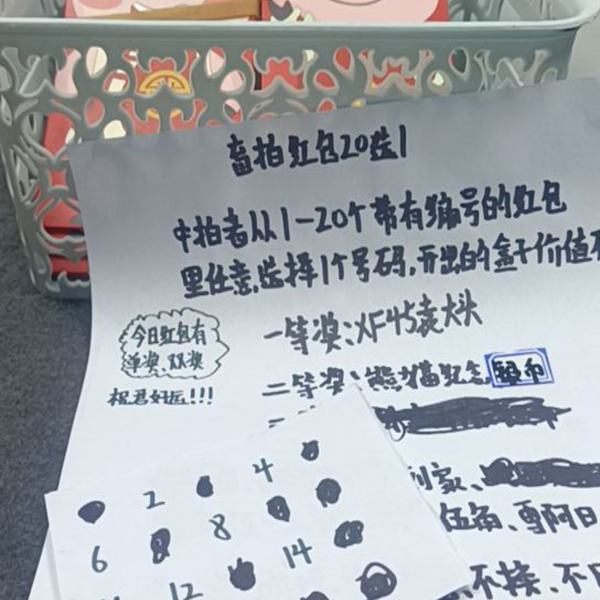 盲拍红包20选1
中拍者从1-20个带有编号的红包
里任意选择1个号码,开出的盒子价值
今日红包有
单奖、双奖
祝君好运!!!
一等奖:XF45袁大头
二等奖:熊猫纪念银币
2 4
6 8
14
12
伍角、
不换、不